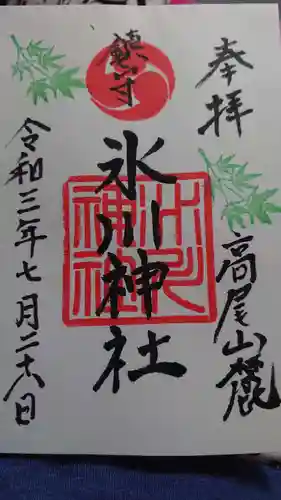 奉拝
高尾山麓
鎮守
氷川神社
令和三年七月二十八日
氷川神社